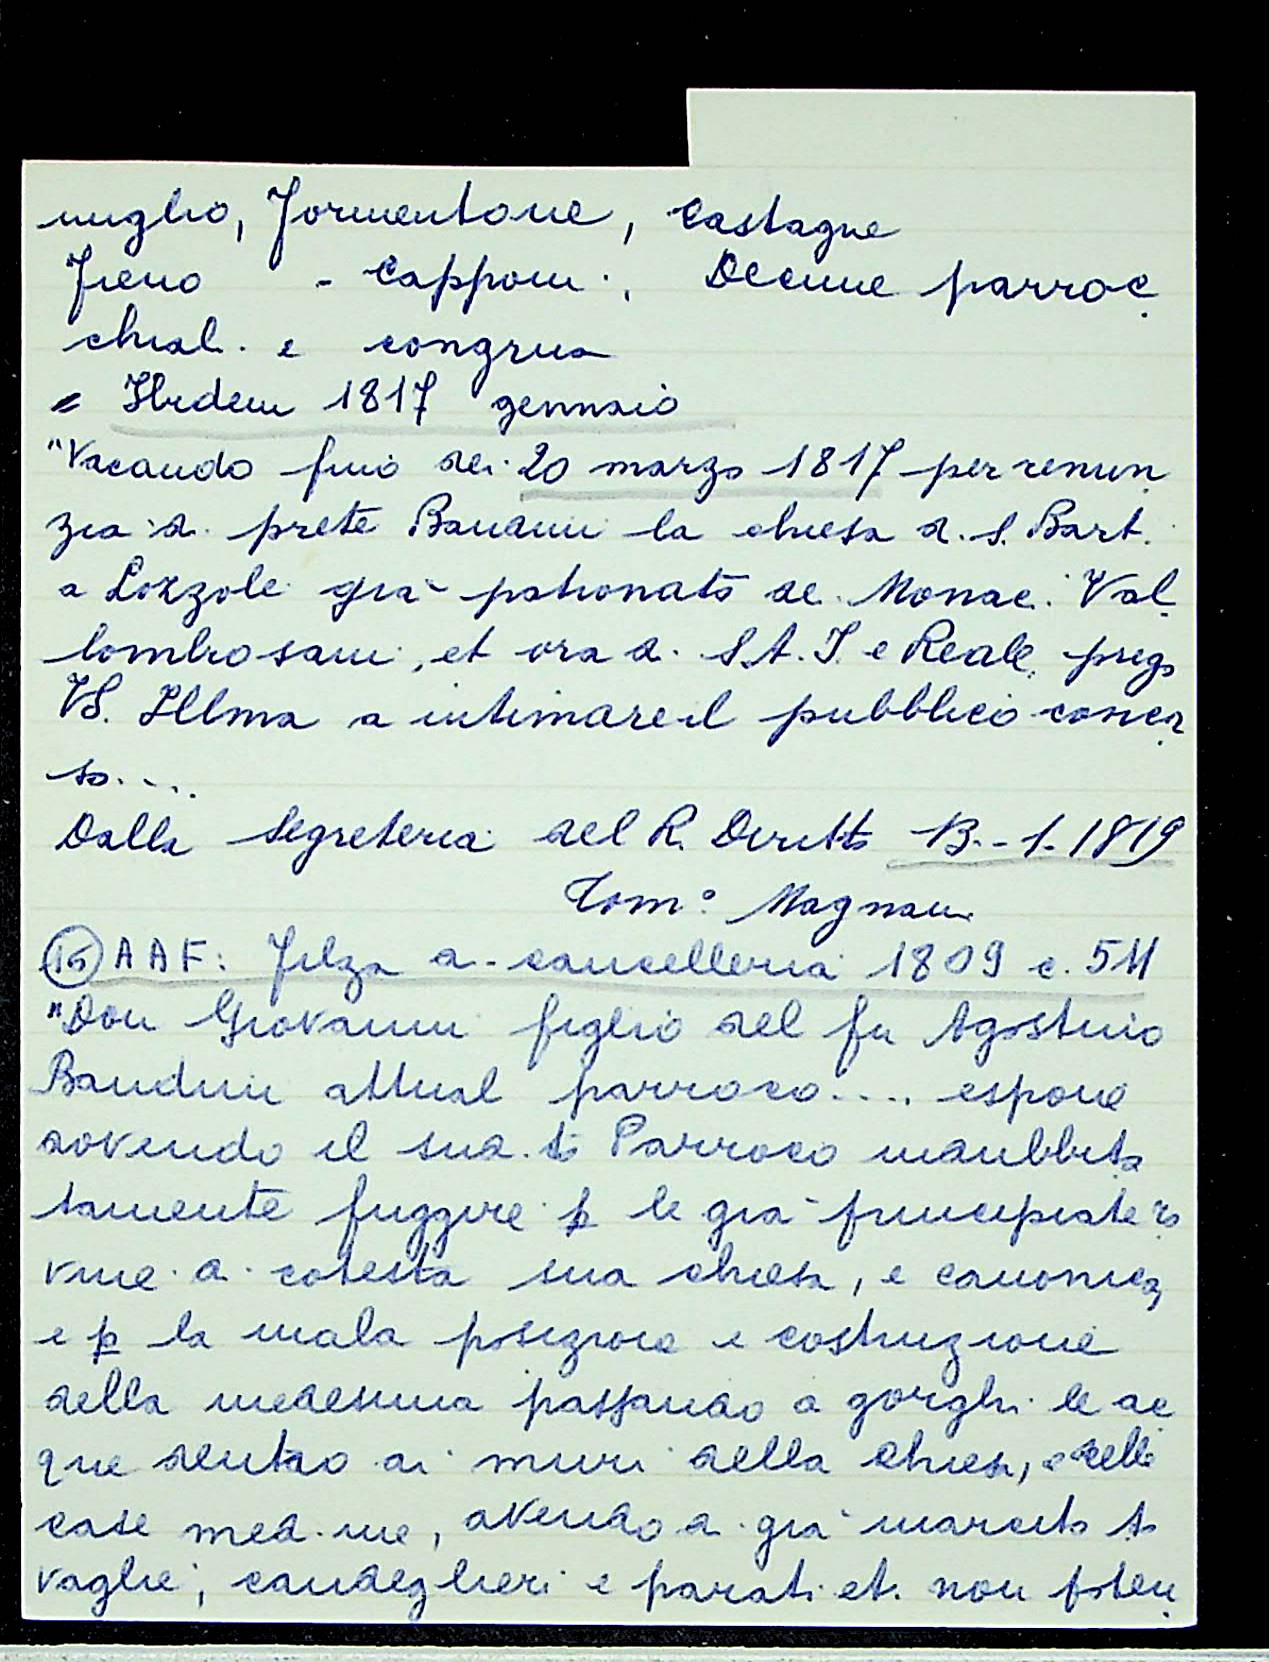 miglio, formentone, castagne
fieno - capponi., Decime parroc
chial. e congrua
= Ibidem 1817 gennaio
"Vacando fino dei 20 marzo 1817 per renun
zia di prete Bandini la chiesa di S. Bart.
a Lozzole già patronato de Monac. Val
lombrosani, et ora di S.A.I. e Reale, prego
VS. Illma a intimare il pubblico concor
so....
Dalla Segreteria del R. Diritto 13.-1.1819
Tom° Magnani
(15) AAF: Filza di cancelleria 1809 c. 511
"Don Giovanni figlio del fu Agostino
Bandini attual parroco.... espone
dovendo il sud.to Parroco indubbita
tamente fuggire p le già principiate ro
vine di cotesta sua chiesa, e canonica,
e p la mala posizione e costruzione
della medesima passando a gorghi le ac
que dentro ai muri della chiesa, e delle
case med.me, avendo di già marcito to
vaglie, candeglieri e parati et. non poten